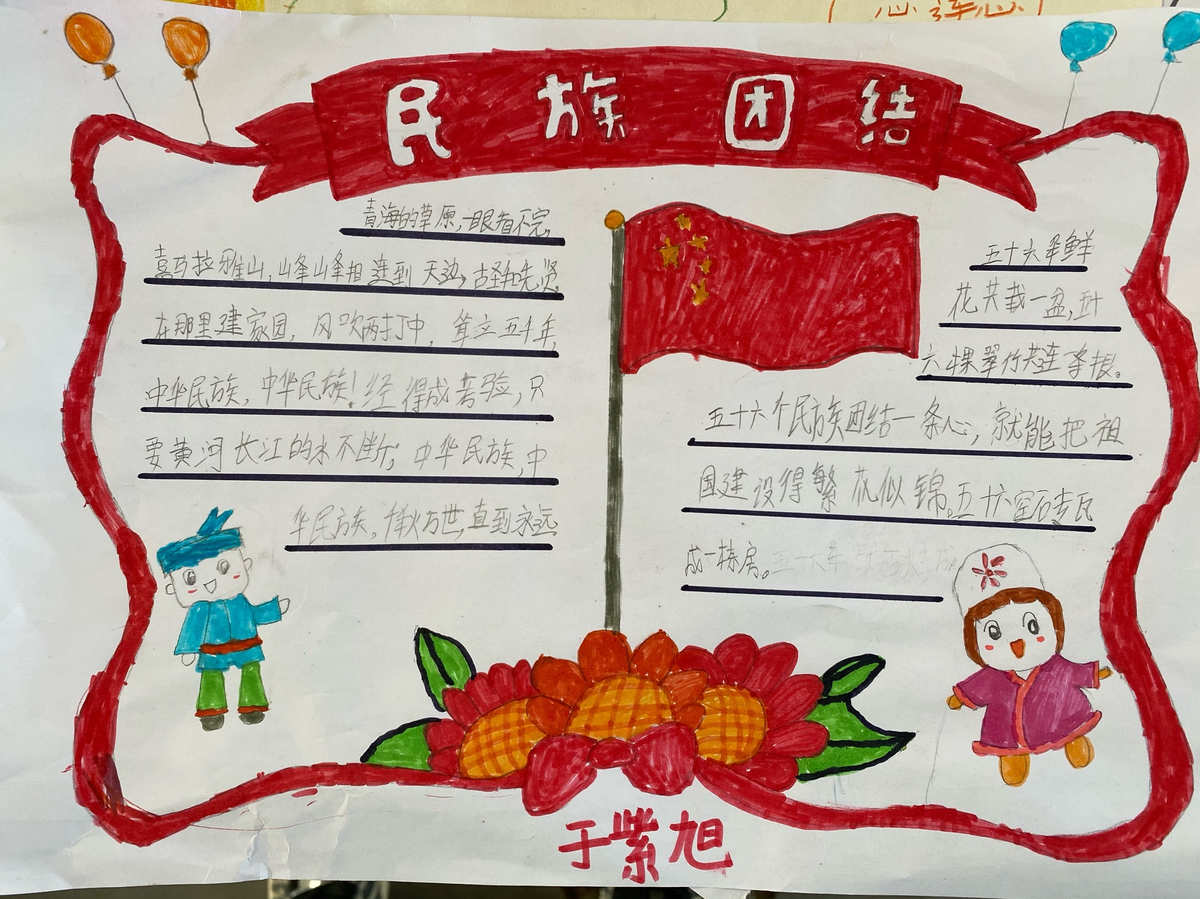 心连心
民族团结
青海的草原,一眼看不完,
喜马拉雅山,山峰山峰相连到天边,古圣和先贤
在那里建家园,风吹雨打中,耸立五千年,
中华民族,中华民族!经得成考验,只
要黄河长江的水不断;中华民族,中
华民族。千秋万世,直到永远
五十六朵鲜
花共栽一盆,五十
六棵翠竹共连条根。
五十六个民族团结一条心,就能把祖
国建设得繁花似锦。五十六窑砖瓦
成一栋房。五十六
于紫旭